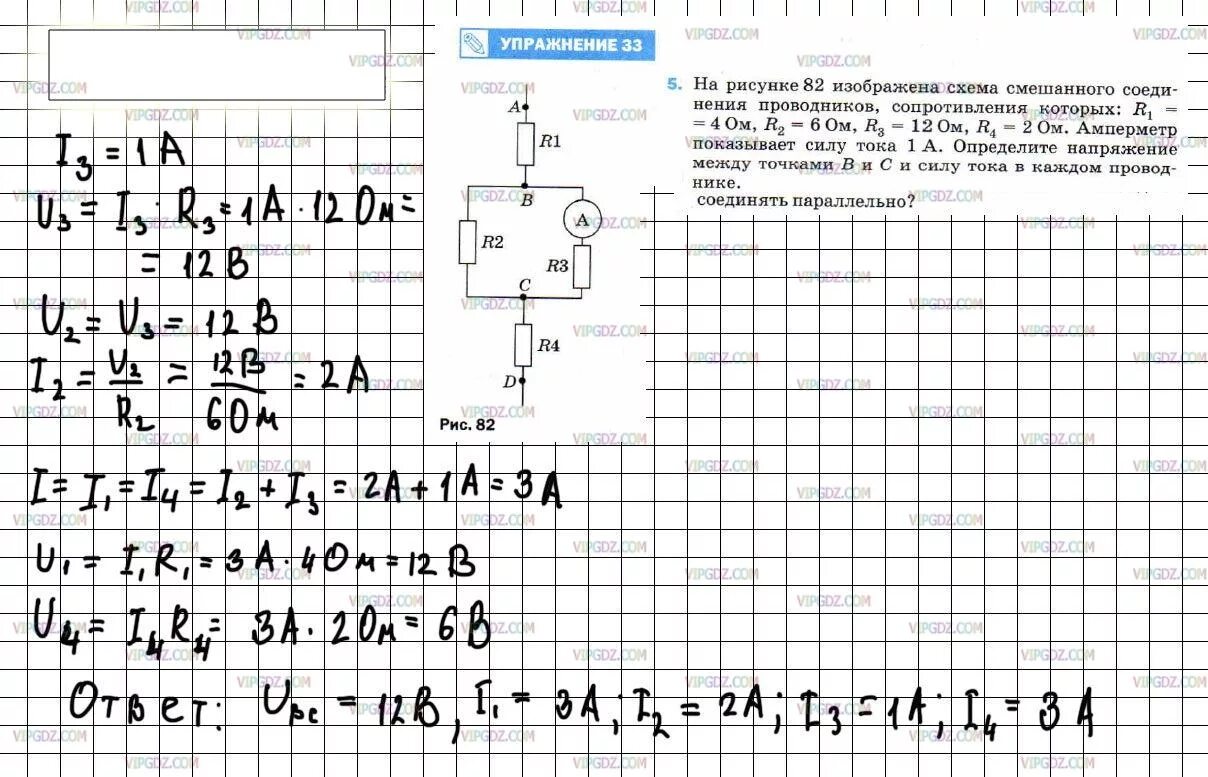 УПРАЖНЕНИЕ 33
5. На рисунке 82 изображена схема смешанного соеди-
нения проводников, сопротивления которых: R₁ =
= 4 Ом, R₂ = 6 Ом, R₃ = 12 Ом, R₄ = 2 Ом. Амперметр
показывает силу тока 1 А. Определите напряжение
между точками В и С и силу тока в каждом провод-
нике.
соединять параллельно?
A
R1
B
A
R2
R3
C
R4
D
Рис. 82
I₃ = 1 А
U₃ = I₃ · R₃ = 1 А · 12 Ом =
= 12 В
U₂ = U₃ = 12 В
I₂ = U₂/R₂ = 12В/6Ом = 2 А
I = I₁ = I₄ = I₂ + I₃ = 2А + 1А = 3А
U₁ = I₁R₁ = 3А · 4Ом = 12 В
U₄ = I₄R₄ = 3А · 2Ом = 6В
Ответ: Uвс = 12В, I₁ = 3А; I₂ = 2А; I₃ = 1А; I₄ = 3А
VIPGDZ.COM